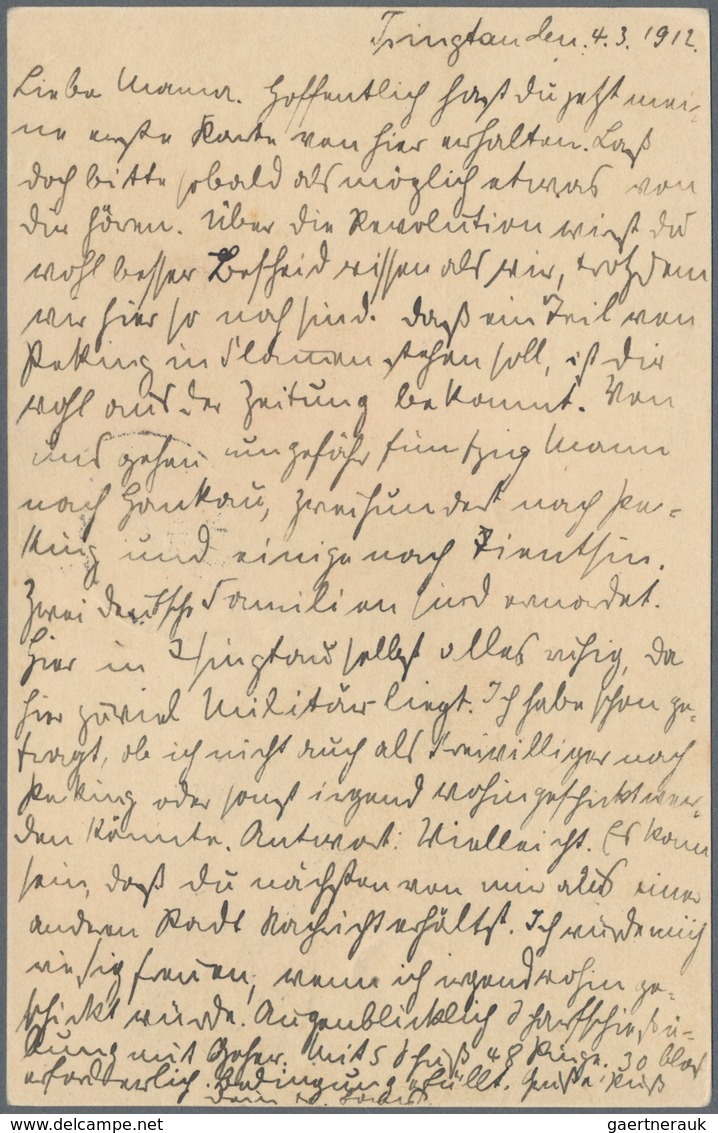 Tsingtau den 4.3.1912.
Liebe Mama. Hoffentlich hast du jetzt mei-
ne erste Karte von hier erhalten. Laß
doch bitte sobald als möglich etwas von
dir hören. Über die Revolution wirst du
wohl besser Bescheid wissen als wir, trotzdem
wir hier so nah sind. Daß ein Teil von
Peking in Flammen stehen soll, ist dir
wohl aus der Zeitung bekannt. Von
uns gehen ungefähr fünfzig Mann
nach Hankau, zweihundert nach Pe-
king und einige nach Tientsin.
Zwei deutsche Familien sind ermordet.
Hier in Tsingtau selbst alles ruhig, da
hier zuviel Militär liegt. Ich habe schon ge-
fragt, ob ich nicht auch als Freiwilliger nach
Peking oder sonst irgend wohin geschickt wer-
den könnte. Antwort: Vielleicht. Es kann
sein, daß du nächstens von mir aus einer
anderen Stadt Nachricht erhältst. Ich würde mich
riesig freuen, wenn ich irgendwohin ge-
schickt würde. Augenblicklich Scharfschießü-
bung mit Mit 5 Schuß 48 Ringe. 30 bloß
erforderlich. Bedingung erfüllt. Gruß u. Kuß
Dein
gaertnerauk